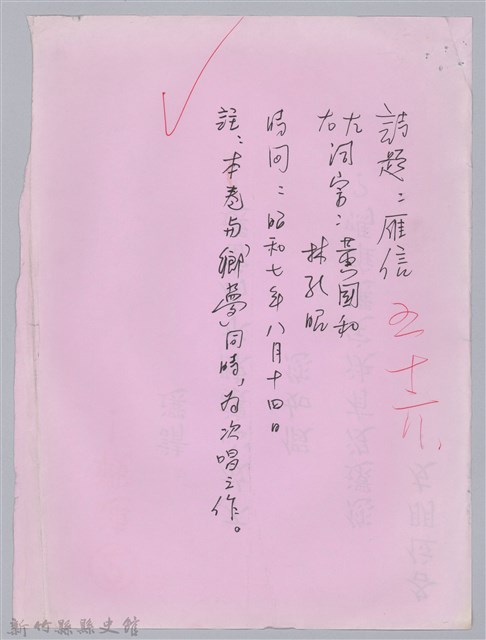 詩題：雁信
五十六
左詞宗：黃國和
右　　　林孔昭
時間：昭和七年八月十四日
註：本卷与「鄉夢」同時，為次唱之作。
新竹縣縣史館